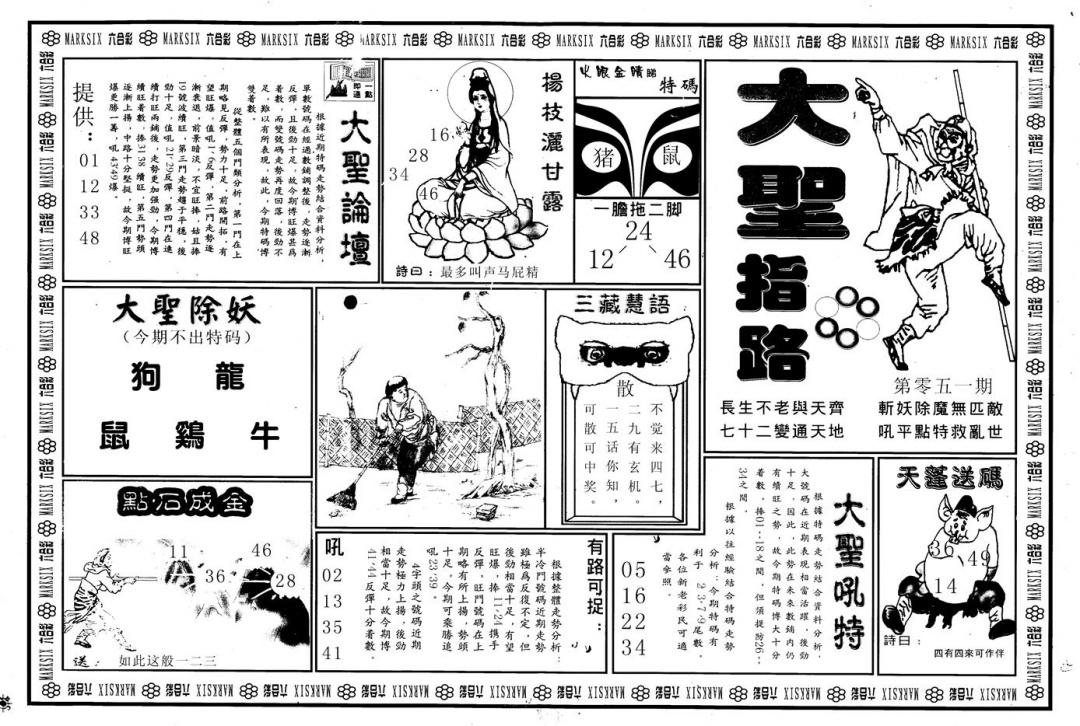 MARKSIX 六合彩 MARKSIX 六合彩 MARKSIX 六合彩 MARKSIX 六合彩 MARKSIX 六合彩 MARKSIX 六合彩 MARKSIX 六合彩 MARKSIX 六合彩 MARKSIX 六合彩 MARKSIX
大聖指路
第零五一期
斬妖除魔無匹敵
吼平點特救亂世
長生不老與天齊
七十二變通天地
火眼金睛睇特碼
猪
鼠
一膽拖二脚
24
12
46
楊枝灑甘露
16
28
34
46
詩曰：最多叫声马屁精
一點即通
大聖論壇
根據近期特碼走勢結合資料分析，
單數號碼在經過數鋪調整後，走勢逐漸
反彈，且後勁十足，故今期博旺爆甚爲
着數，而變號碼走勢再度回落，後勁不
足，雖以有所表現，故此，今期特碼博
雙着數。
從整體五個門類分析，第一門在上
期略見反彈，勢力十足，前路開拓，有
望旺爆，值吼1·6反彈，第二門走勢逐
漸衰退，前景暗淡，不宜旺捧，姑且捧
19號波續旺，第三門走勢趨于平穩，後
勁十足，值吼21·29反彈，第四門在連
續打旺兩鋪後，走勢更加强勁，今期博
續旺着數，捧31·38續旺，第五門勢頭
逐漸上揚，中路十分堅挺，故今期博旺
爆更勝一籌，吼43·49爆。
提供：
01
12
33
48
大聖除妖
（今期不出特码）
狗 龍
鼠 鷄 牛
三藏慧語
散
不觉来四七，
二九有玄机。
一五话你知，
可散可中奖。
點石成金
11
46
36
28
送：如此这般一二三
有路可捉：
根據整體走勢分析：
半冷門號碼近期走勢
雖極爲反復不定，但
後勁相當十足，有望
旺爆，捧11·24携手
反彈，旺門號碼在上
期略有所上揚，勢頭
十足，今期可乘勝追
吼23·39。
4字頭之號碼近期
走勢極力上揚，後勁
相當十足，故今期博
41·44反彈十分着數。
吼
02
13
35
41
大聖吼特
根據特碼走勢結合資料分析，
大號碼在近期表現相當活躍，後勁
十足，因此，此勢在未來數鋪内仍
有續旺之勢，故今期特碼博大十分
着數，捧01--18之間，但須提防26--
34之間。
根據以往經驗結合特碼走勢
分析：今期特碼有
利于2·3·7·9尾數，
各位新老彩民可適
當參照。
05
16
22
34
天蓬送碼
36
49
14
詩曰：
四有四來可作伴